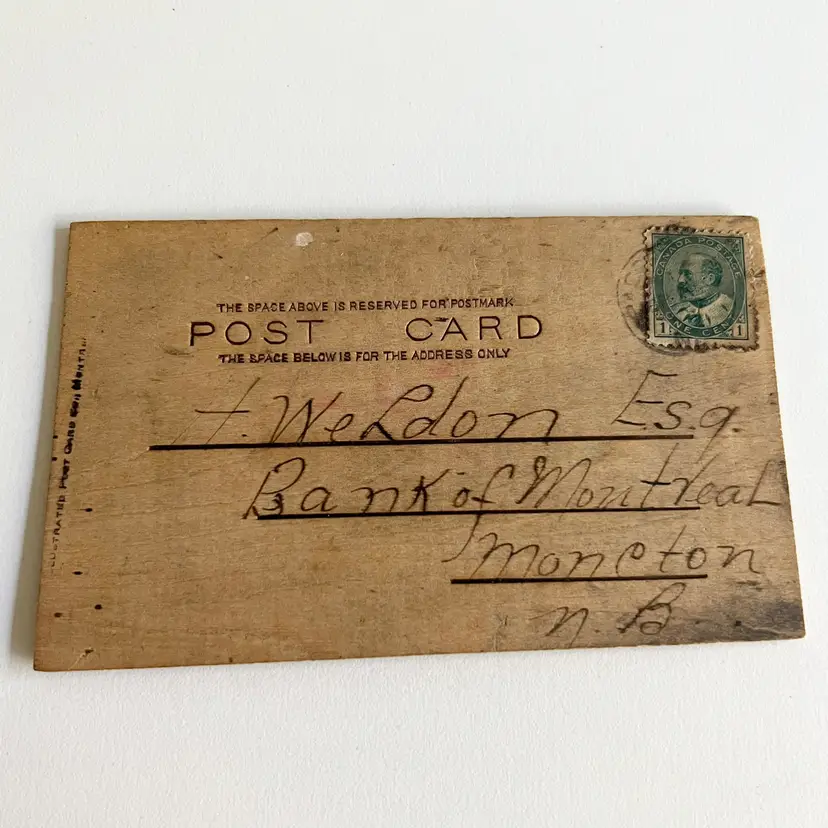 THE SPACE ABOVE IS RESERVED FOR POSTMARK
POST CARD
THE SPACE BELOW IS FOR THE ADDRESS ONLY
CANADA POSTAGE
1 ONE CENT 1
H. Weldon Esq.
Bank of Montreal
Moncton
N. B.
POST CARD